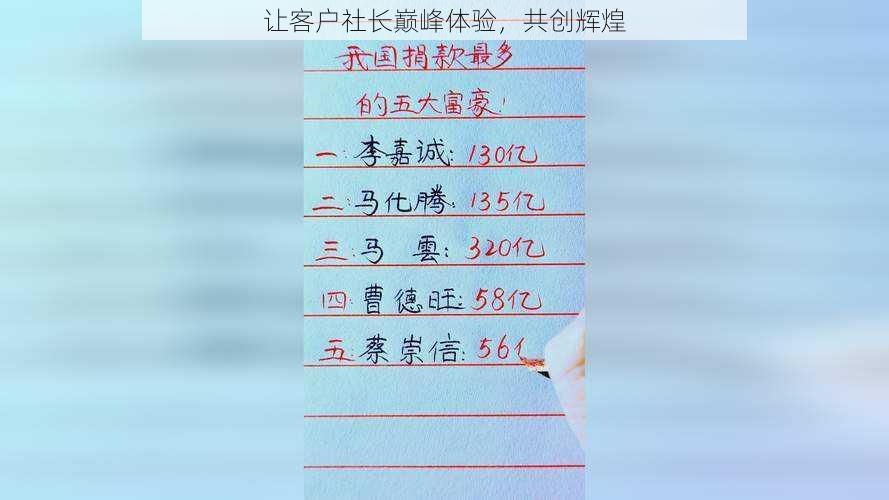 让客户社长巅峰体验，共创辉煌
我国捐款最多
的五大富豪！
一：李嘉诚：130亿
二：马化腾：135亿
三：马雲：320亿
四：曹德旺：58亿
五：蔡崇信：56